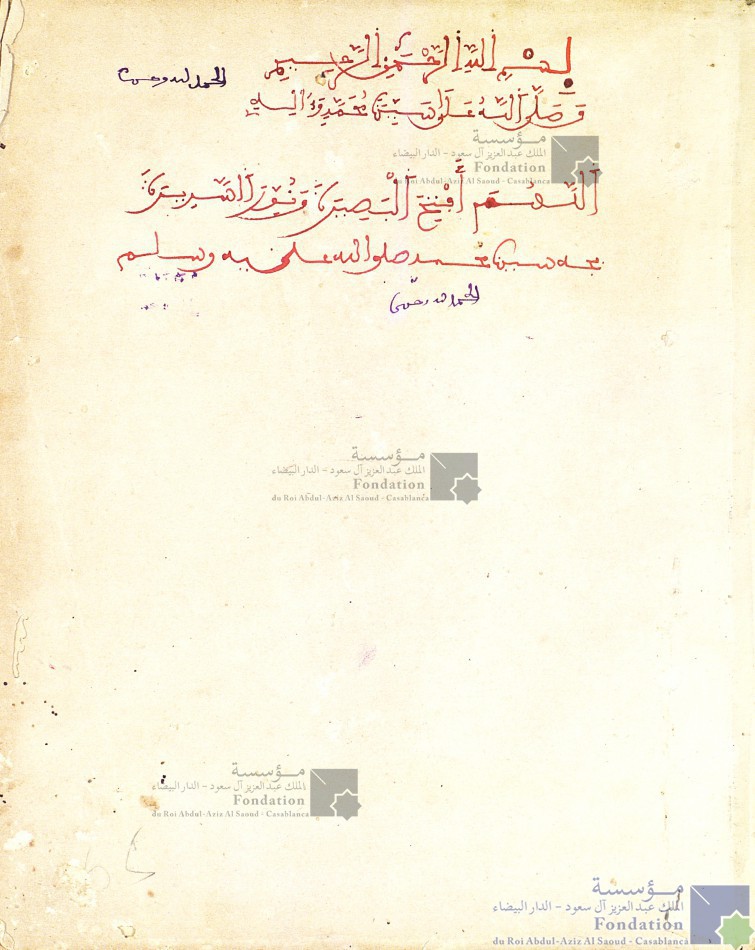 بسم الله الرحمن الرحيم
الحمد لله وحده
وصلى الله على سيدنا محمد وءاله
مؤسسة
الملك عبد العزيز آل سعود - الدار البيضاء
Fondation
du Roi Abdul-Aziz Al Saoud - Casablanca
اللهم افتح البصيرة ونور السريرة
بجاه سيدنا محمد صلى الله عليه وسلم
الحمد لله وحده
مؤسسة
الملك عبد العزيز آل سعود - الدار البيضاء
Fondation
du Roi Abdul-Aziz Al Saoud - Casablanca
مؤسسة
الملك عبد العزيز آل سعود - الدار البيضاء
Fondation
du Roi Abdul-Aziz Al Saoud - Casablanca
مؤسسة
الملك عبد العزيز آل سعود - الدار البيضاء
Fondation
du Roi Abdul-Aziz Al Saoud - Casablanca